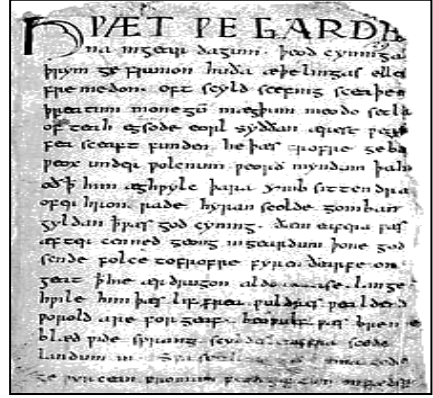 HǷÆT ǷE GARDE
na ingear dagum. þeod cyninga
þrym ge frunon huða æþelingas ellen
fremedon. oft scyld scefing sceaþen
þreatum monegū mægþum meodo setla
of teah egsode eorl syððan ærest ƿearð
fea sceaft funden he þæs frofre geba
ƿeox under ƿolcnum ƿeorð myndum þah
oð ꝥ him æghƿylc þara ymb sittendra
ofer hron rade hyran scolde gomban
gyldan ꝥ ƿæs god cyning. ðæm eafera ƿæs
æfter cenned geong ingeardum þone god
sende folce tofrofre fyren ðearfe on
geat ꝥ hie ær drugon aldor ase. lange
hƿile him þæs lif frea ƿuldres ƿealdend
ƿorold are forgeaf. beoƿulf ƿæs breme
blæd ƿide sprang scyldes eafera scede
landum in.